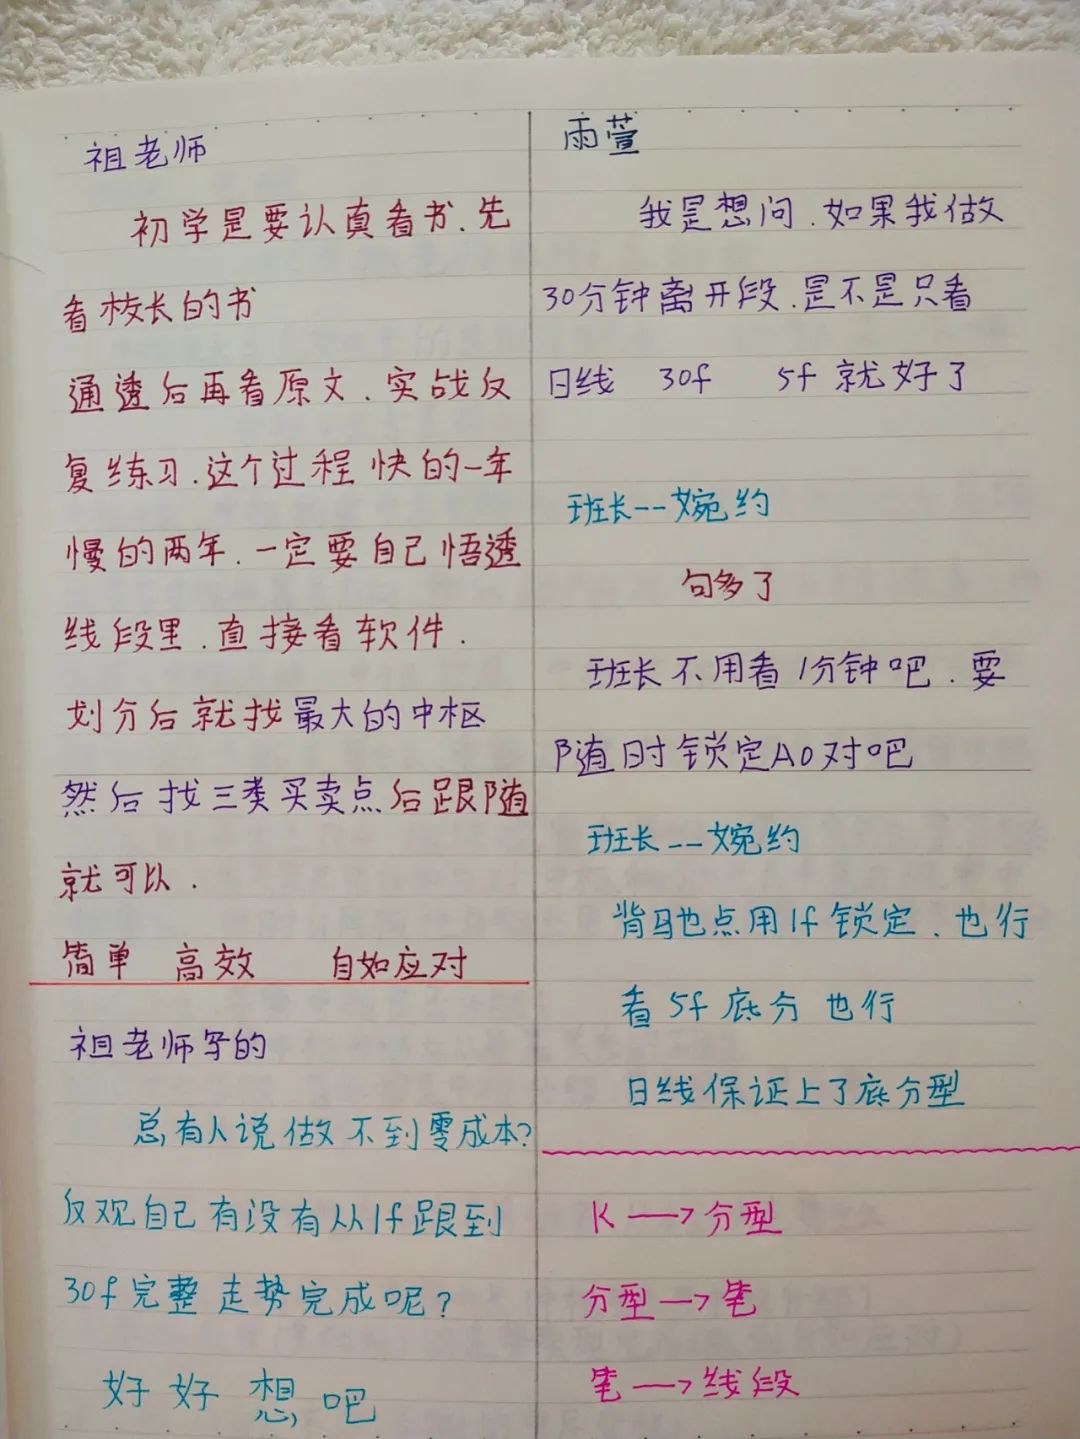 祖老师
初学是要认真看书.先
看校长的书
通透后再看原文.实战反
复练习.这个过程 快的一年
慢的两年.一定要自己悟透
线段里.直接看软件.
划分后就找最大的中枢
然后找三类买卖点后跟随
就可以.
简单 高效 自如应对
祖老师写的
总有人说做不到零成本?
反观自己有没有从1f跟到
30f完整走势完成呢?
好好想吧
雨萱
我是想问.如果我做
30分钟离开段.是不是只看
日线 30f 5f 就好了
班长--婉约
句多了
班长不用看1分钟吧.要
随时锁定A0对吧
班长--婉约
背驰点用1f锁定.也行
看5f底分也行
日线保证上了底分型
K→分型
分型→笔
笔→线段